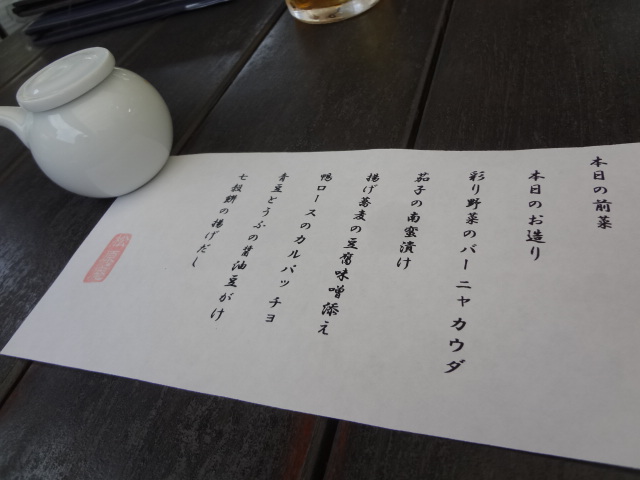 本日の前菜
本日のお造り
彩り野菜のバーニャカウダ
茄子の南蛮漬け
揚げ蕎麦の豆腐味噌添え
鴨ロースのカルパッチョ
青豆とうふの醤油豆がけ
七穀餅の揚げだし